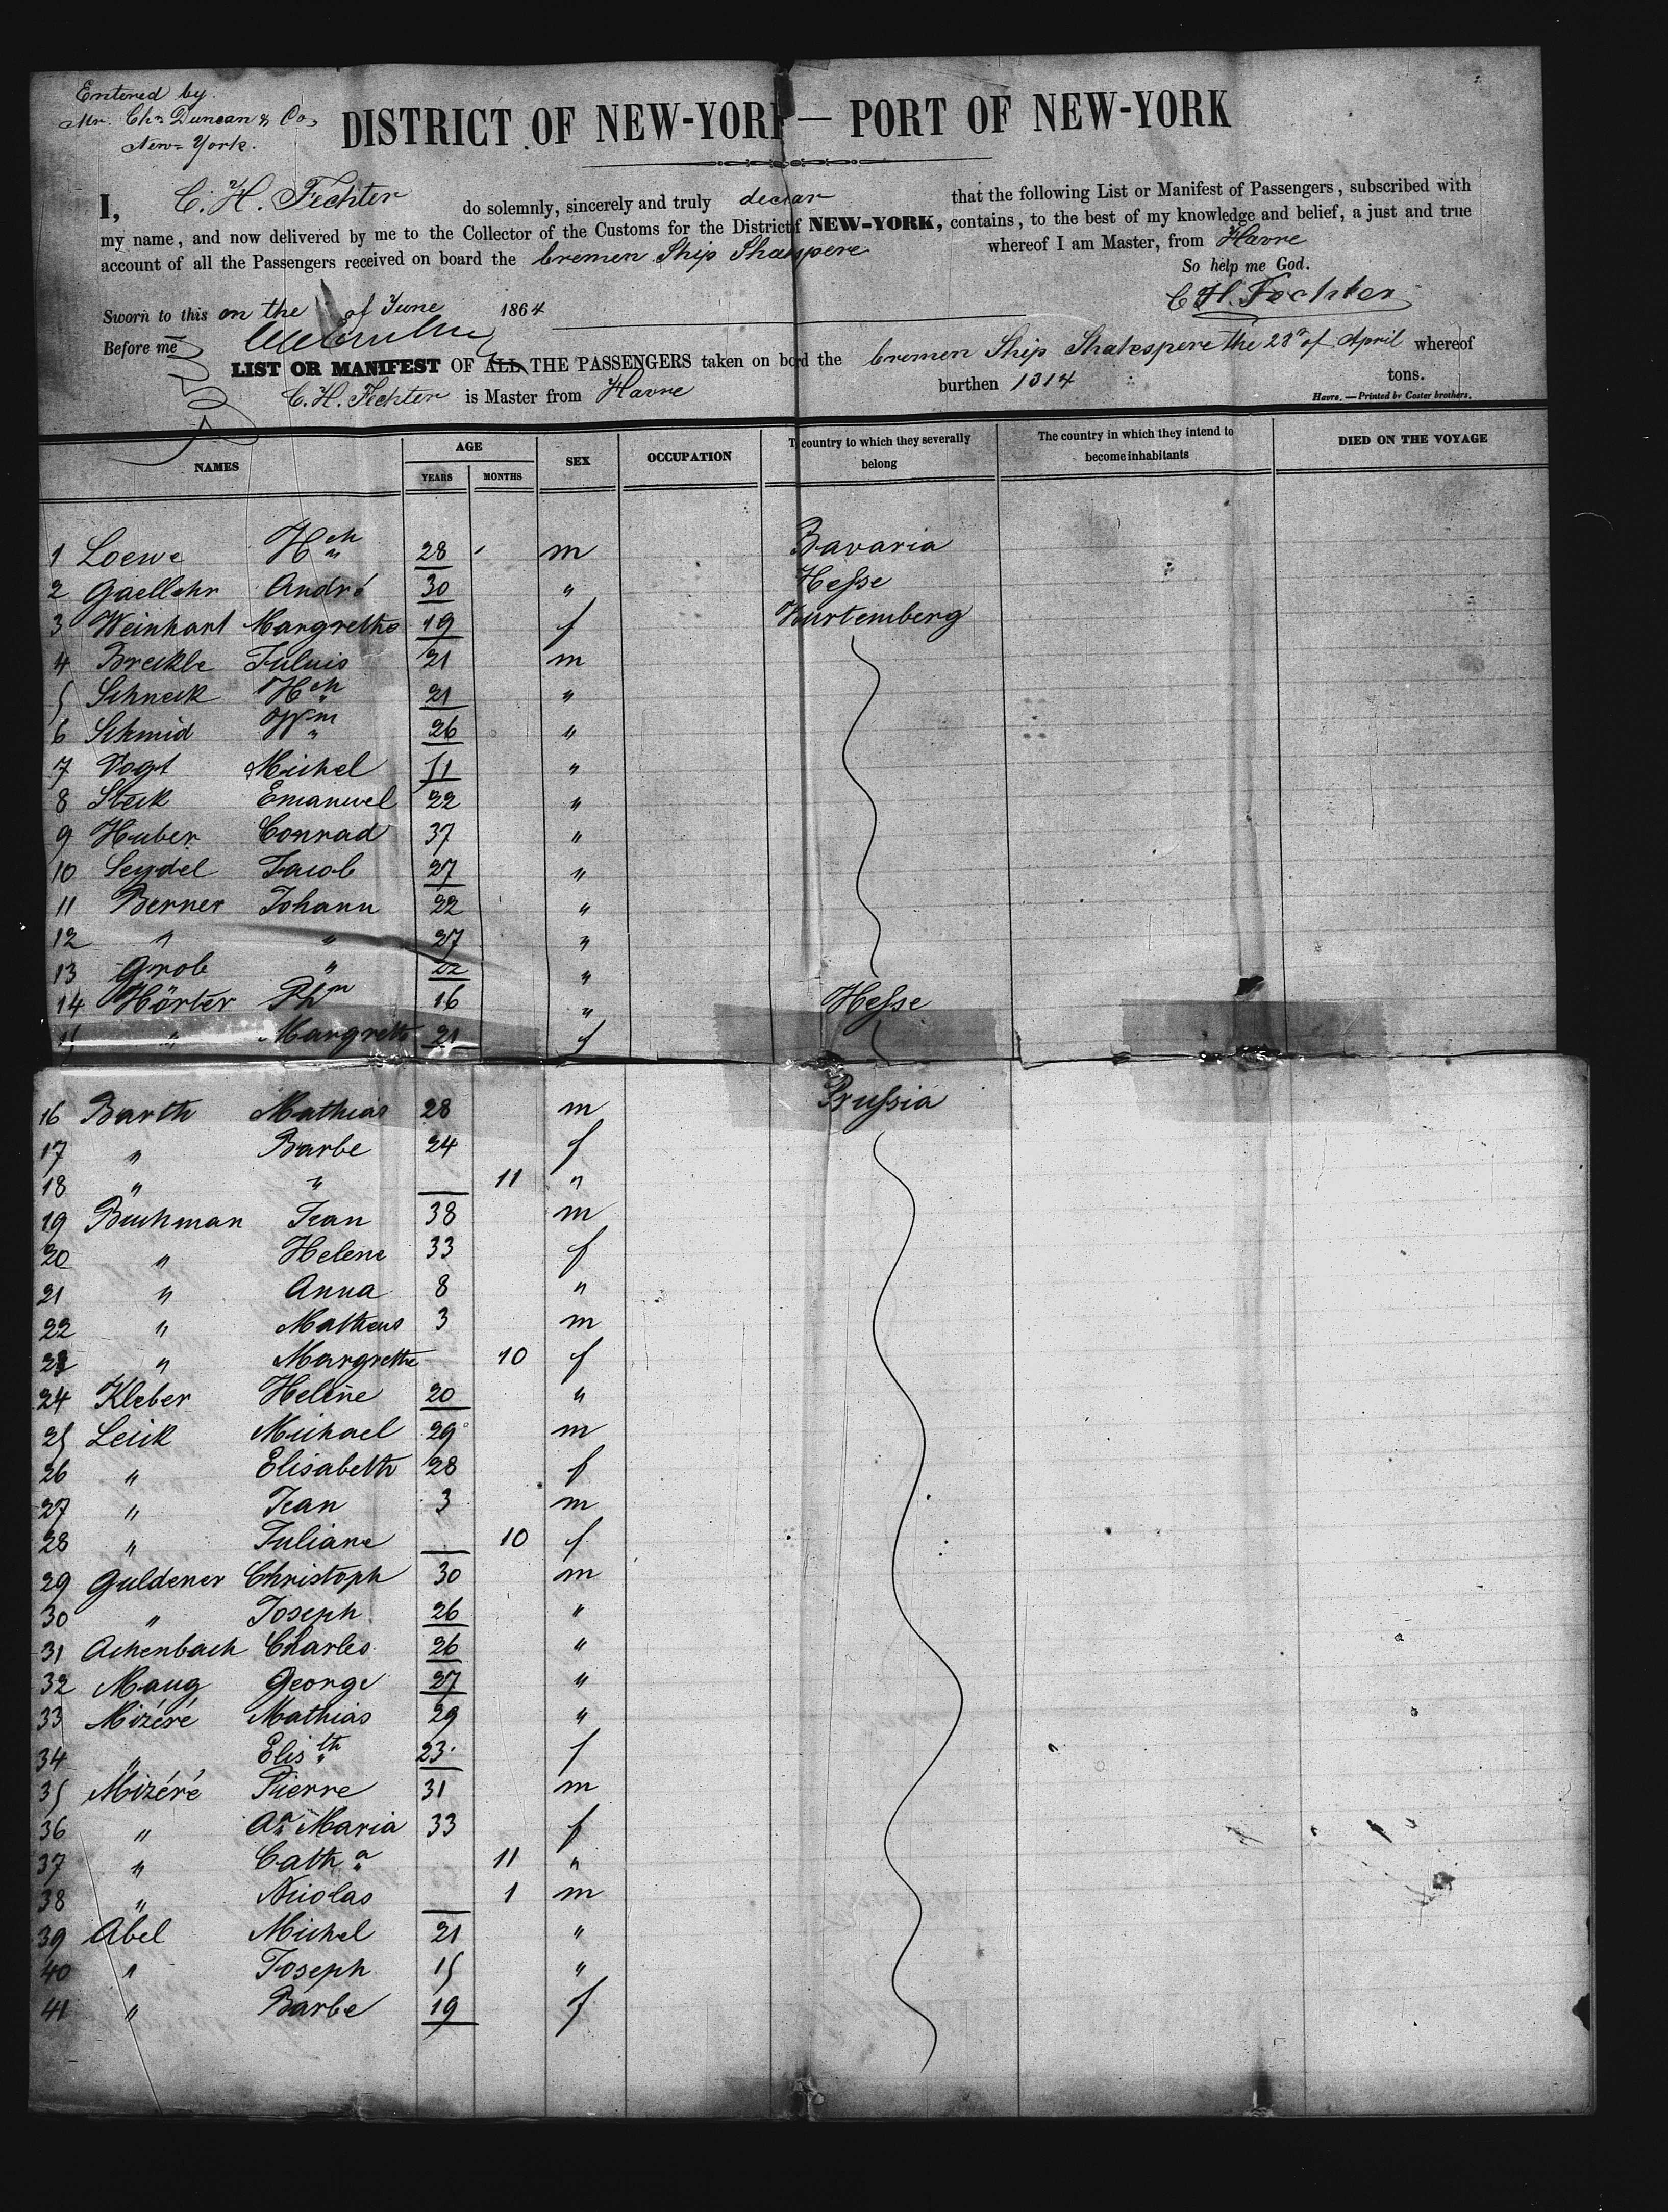 Entered by
Mr. Chs Duncan & Co,
New-York.
DISTRICT OF NEW-YORK — PORT OF NEW-YORK
I, C. H. Fechter do solemnly, sincerely and truly declar that the following List or Manifest of Passengers, subscribed with
my name, and now delivered by me to the Collector of the Customs for the District of NEW-YORK, contains, to the best of my knowledge and belief, a just and true
account of all the Passengers received on board the bremen Ship Shakspere whereof I am Master, from Havre
So help me God.
Sworn to this on the of June 1864
C H. Fechter
Before me
LIST OR MANIFEST OF ALL THE PASSENGERS taken on bord the bremen Ship Shakespere the 28n of April whereof
C. H. Fechter is Master from Havre burthen 1314 tons.
Havre. — Printed br Coster brothers.
NAMES AGE YEARS MONTHS SEX OCCUPATION T country to which they severally belong The country in which they intend to become inhabitants DIED ON THE VOYAGE
1 Loewe Hch 28 m Bavaria
2 Gaellehr André 30 " Hesse
3 Weinhart Margrethe 19 f Wurtemberg
4 Breckle Juluis 21 m
5 Schneck Hch 21 "
6 Schmid Wm 26 "
7 Vogt Michel 51 "
8 Steck Emanuel 22 "
9 Huber Conrad 37 "
10 Seydel Jacob 27 "
11 Berner Johann 22 "
12 " " 27 "
13 Grob " 22 "
14 Hörter Phn 16 " Hesse
15 " Margreth 21 f
16 Barth Mathias 28 m Prussia
17 " Barbe 24 f
18 " " 11 "
19 Buchman Jean 38 m
20 " Helene 33 f
21 " Anna 8 "
22 " Matheus 3 m
23 " Margrethe 10 f
24 Kleber Helene 20 "
25 Leick Michael 29 m
26 " Elisabeth 28 f
27 " Jean 3 m
28 " Juliane 10 f
29 Guldener Christoph 30 m
30 " Joseph 26 "
31 Achenbach Charles 26 "
32 Maug George 27 "
33 Mizéré Mathias 29 "
34 " Elisth 23 f
35 Mizéré Pierre 31 m
36 " An Maria 33 f
37 " Catha 11 "
38 " Nicolas 1 m
39 Abel Michel 21 "
40 " Joseph 15 "
41 " Barbe 19 f